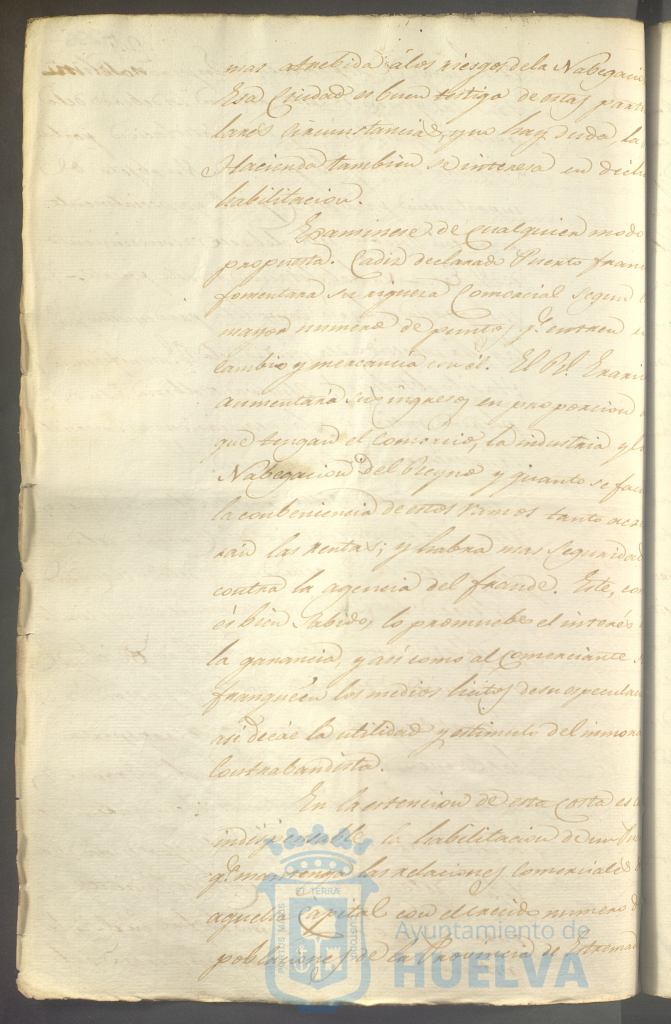 mas atrebida álos riesgos dela Nabegaci
Esa Ciudad es buen testigo de estas parti
lares circunstancias, y no hay duda, la
Hacienda tambien se interesa en dich
habilitacion.
Examinese de cualquier modo
propuesta. Cadiz declarado Puerto fran
fomentará su riqueza Comercial segun
mayor numero de puntos qe. entren
cambio y mercancia con él. El Rl. Erari
aumentará sus ingresos en proporcion
que tengan el comercio, la industria y l
Nabegacion del Reyno y quanto se fac
la conbeniencia de estos ramos tanto
ran las rentas; y habra mas seguridad
contra la agencia del fraude. Este, co
és bien sabido, lo promuebe el interés
la ganancia, y así como al Comerciante
franqueen los medios licitos de su especula
asi decáe la utilidad y estimulo del inmora
Contrabandista.
En la estencion de esta costa es
indispensable la habilitacion de un Pu
qe. mantenga las relaciones comerciales
aquella Capital con el crecido numero d
poblaciones de la Provincia de Estrema
Ayuntamiento de
HUELVA